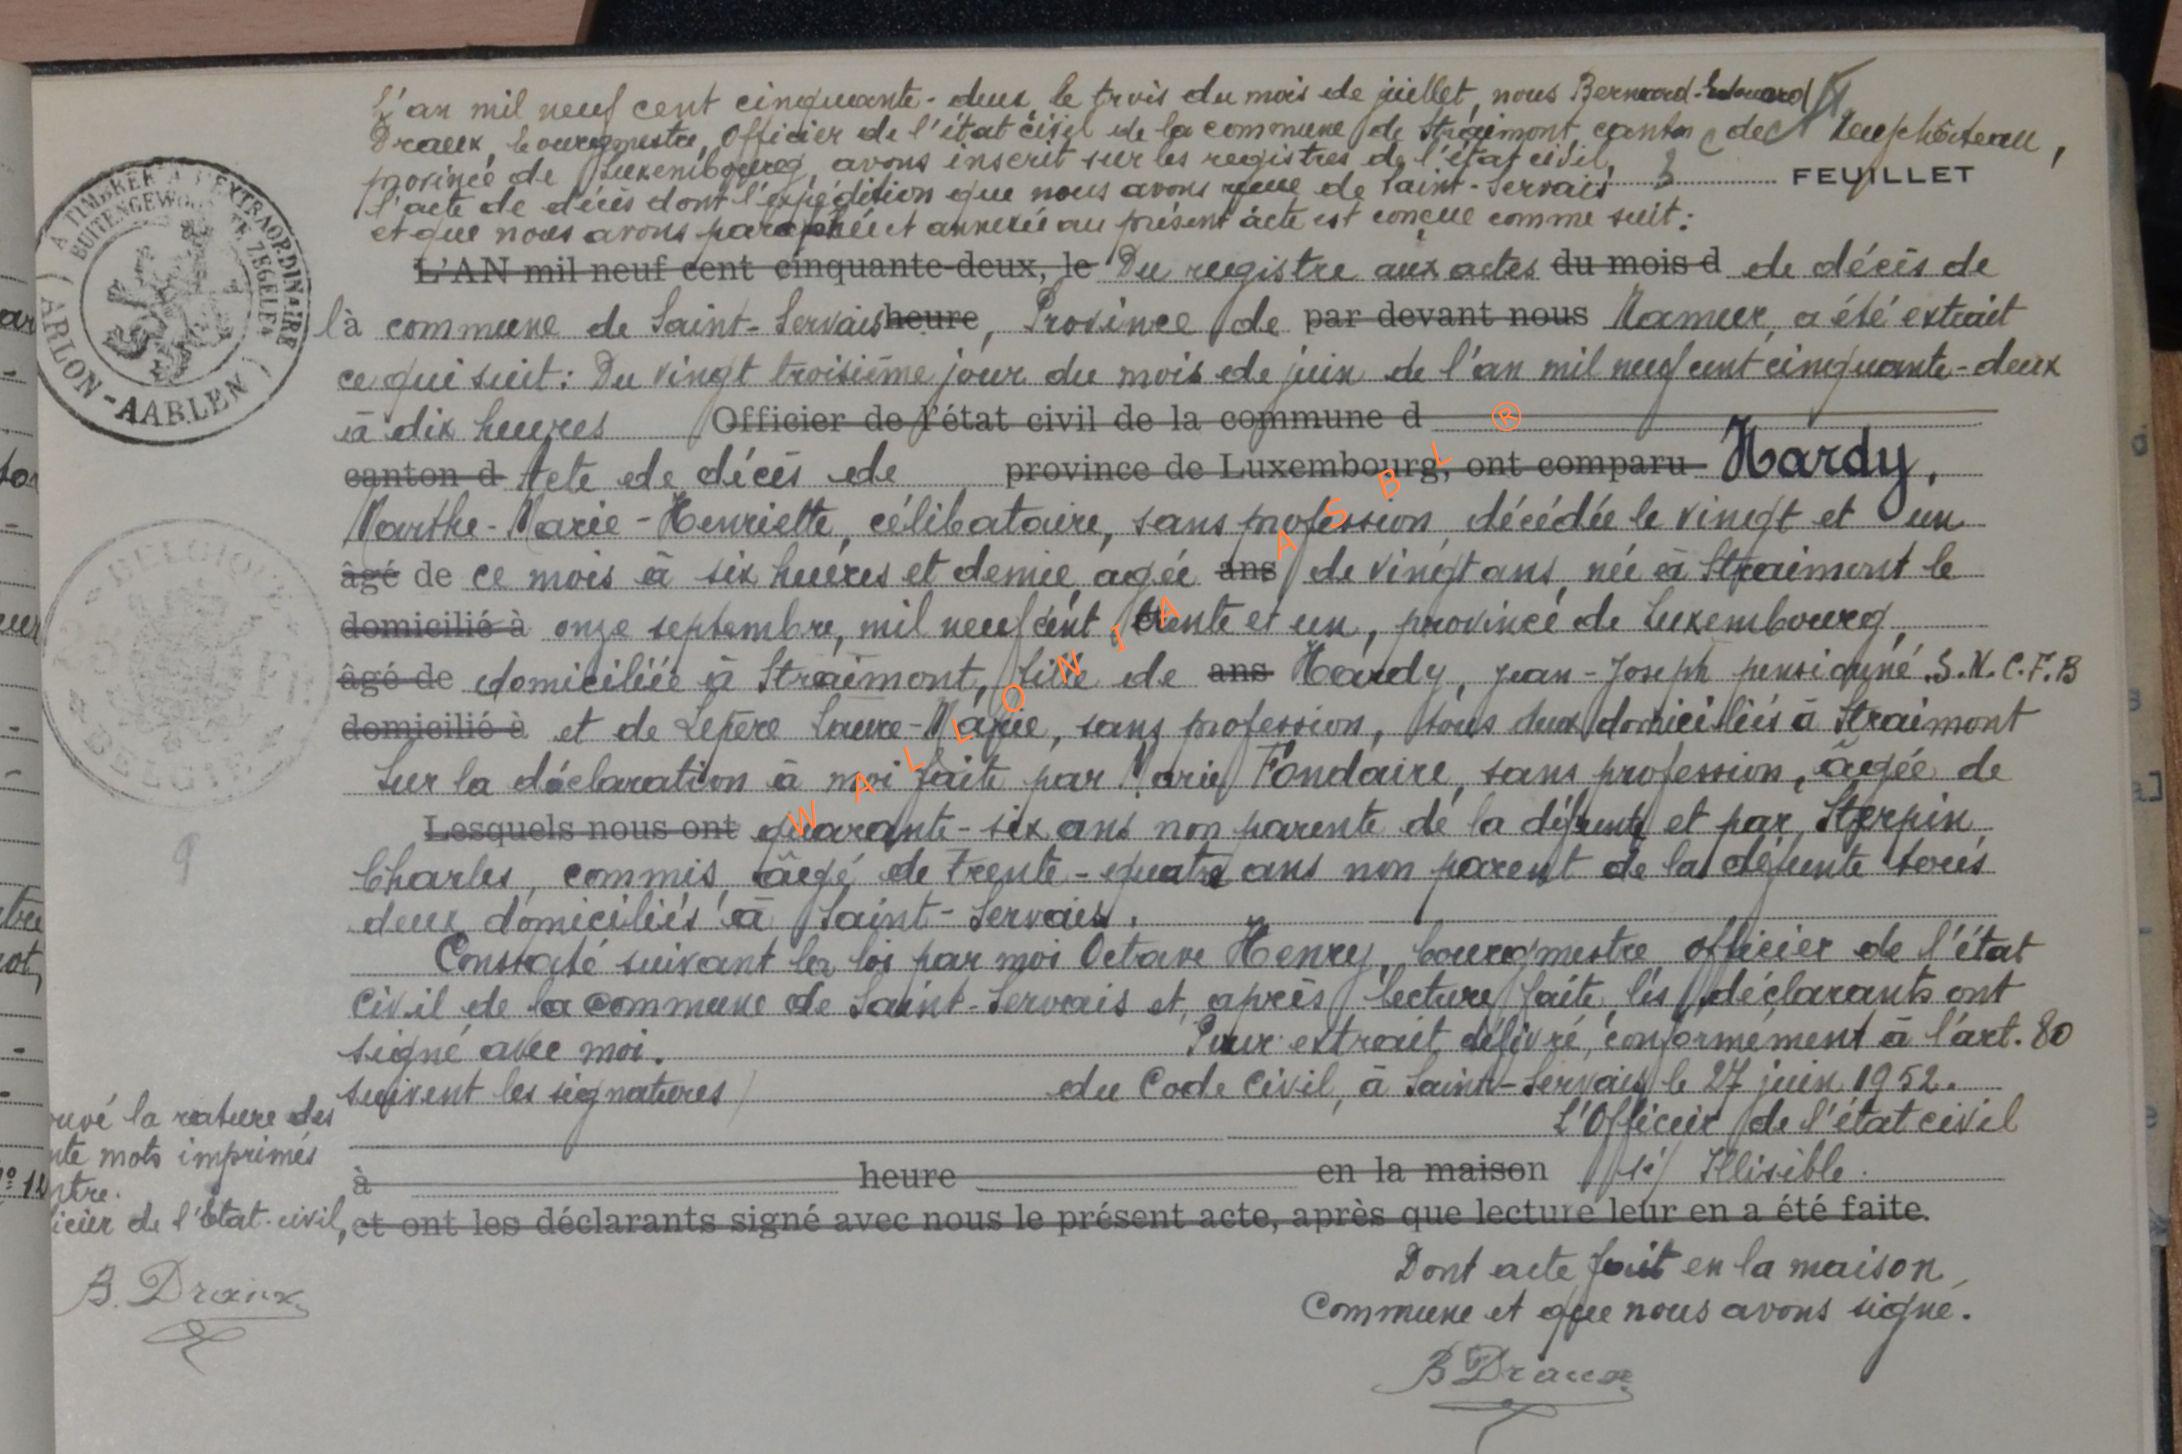 L'an mil neuf cent cinquante-deux, le trois du mois de juillet, nous Bernard-Edouard
Draux, bourgmestre, Officier de l'état civil de la commune de Straimont, canton de Neufchâteau,
province de Luxembourg, avons inscrit sur les registres de l'état civil,
FEUILLET
l'acte de décès dont l'expédition que nous avons reçue de Saint-Servais
et que nous avons paraphée et annexée au présent acte est conçue comme suit:
L'AN mil neuf cent cinquante-deux, le Du registre aux actes du mois d de décès de
là commune de Saint-Servais heure, Province de par devant nous Namur, a été extrait
ce qui suit: Du vingt troisième jour du mois de juin de l'an mil neuf cent cinquante-deux
à dix heures Officier de l'état civil de la commune d
canton d Acte de décès de province de Luxembourg, ont comparu Hardy,
Marthe-Marie-Henriette, célibataire, sans profession, décédée le vingt et un
âgé de ce mois à six heures et demie, agée ans de vingt ans, née à Straimont le
domicilié à onze septembre, mil neuf cent trente et un, province de Luxembourg,
âgé de domiciliée à Straimont, fille de ans Hardy, Jean-Joseph pensionné S.N.C.F.B
domicilié à et de Lepère Laure-Marie, sans profession, tous deux domiciliés à Straimont
Sur la déclaration à moi faite par Marie Fondaire, sans profession, âgée de
Lesquels nous ont quarante-six ans non parente de la défunte et par Sterpin
Charles, commis, âgé de trente-quatre ans non parent de la défunte tous
deux domiciliés à Saint-Servais.
Constaté suivant la loi par moi Octave Henry, bourgmestre officier de l'état
Civil de la commune de Saint-Servais et, après lecture faite, les déclarants ont
signé avec moi. Pour extrait délivré, conformément à l'art. 80
suivent les signatures) du Code Civil, à Saint-Servais le 27 juin 1952.
L'Officier de l'état civil
à heure en la maison (sé) Illisible.
et ont les déclarants signé avec nous le présent acte, après que lecture leur en a été faite.
Dont acte fait en la maison
Commune et que nous avons signé.
B Draux
A TIMBRER A L'EXTRAORDINAIRE
BUITENGEWONE TE ZEGELEN
ARLON-AARLEN
BELGIQUE
BELGIE
9
ouvé la rature des
nte mots imprimés
ntre.
icier de l'état-civil,
B. Draux
WALLONIA ASBL ®